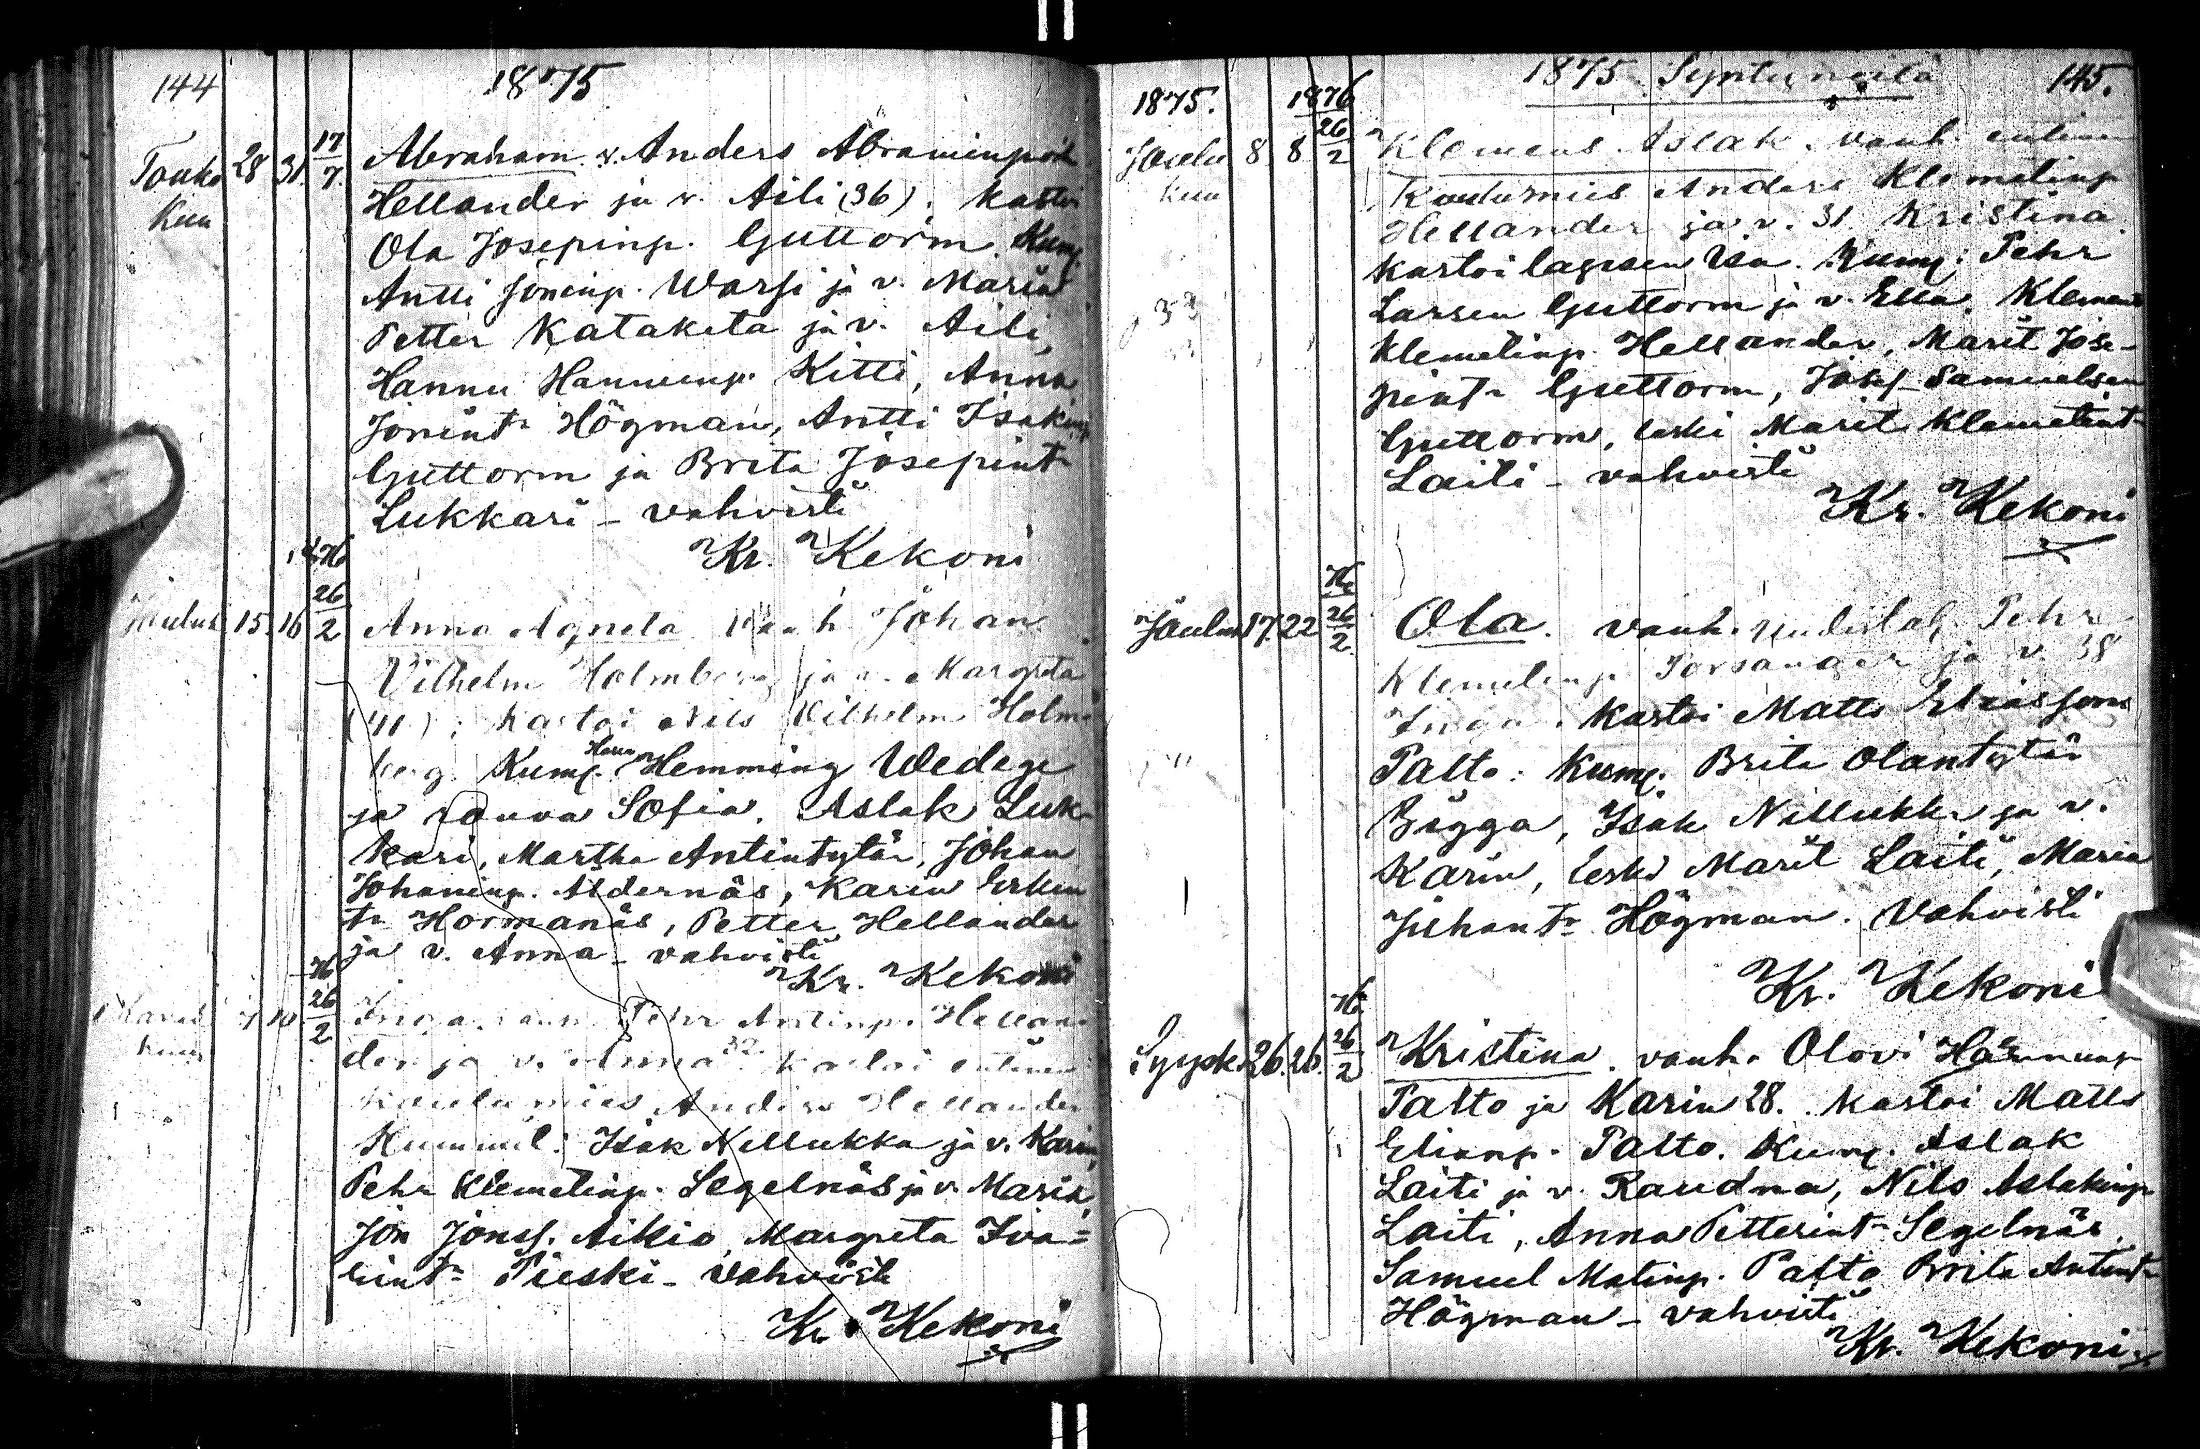 144
1875
Touko 28 31 17/7 Abraham v. Anders Abraminpoik
Kuu Hellander ja v. Aili (36). kastoi
Ola Josepinp. Guttorm. Kum.
Antti Joninp. Warsi ja v. Maria
Petter Kataketa ja v. Aili,
Hannu Hannunp. Kitti, Anna
Jonint. Högman, Antti Isakinp
Guttorm ja Brita Josepint
Lukkari - vahvisti
Kr. Kekoni
1876
Joulu 15. 16 26/2 Anna Agneta Vanh. Johan
Vilhelm Holmberg ja v. Margreta
(41); kastoi Nils Vilhelm Holm-
berg. Kum. Herra Hemming Wedege
ja rouva Sofia. Aslak Luk-
kari, Martha Antintytär, Johan
Johaninp. Aldernäs, Karin Erkin
tr Hormanäs, Petter Hellander
ja v. Anna - vahvisti
Kr. Kekoni
76
7 10 26/2 Inga. vanh. Pehr Antinp. Hellan-
kuu der ja v. Anna 32 kastoi entinen
Koulumies Anders Hellander
Kummit: Isak Nillukka ja v. Karin,
Pehr Klemetinp. Segelnäs ja v. Maria,
Jon Jonss. Aikio, Margreta Iva=
rint. Pieski - Vahvisti
Kr. Kekoni
1875.
1876
1875 145.
Joulu 8 8 26/2 Klemens Aslak. vanh. entinen
kuu Koulumies Anders Klemetinp
Hellander ja v. 31 Kristina
kastoi lapsen Isä. Kum; Pehr
Larsen Guttorm ja v. Ella. Klemens
Klemetinp. Hellander, Marit Jose-
pint. Guttorm, Josef Samuelsen
Guttorm, leski Marit Klemetint
Laiti - vahvisti
Kr. Kekoni
76
Joulu 17. 22 26/2 Ola. vanh. Pehr
Klemetinp. Porsanger ja v. 38
Inga. kastoi Matts Eliassons
Palto: Kum. Brita Olantytär
Bigga, Isak Nillukka ja v.
Karin, leski Marit Laiti, Maria
Juhant. Högman. Vahvisti
Kr. Kekoni
76
Syysk. 26. 26. 26/2 Kristina. vanh. Olovi Hannunp
Palto ja Karin 28. kastoi Matts
Elianp. Palto. Kum. Aslak
Laiti ja v. Raudna, Nils Aslakinp
Laiti, Anna Petterint Segelnäs,
Samuel Matinp. Palto Brita Antint
Högman - vahvisti
Kr. Kekoni